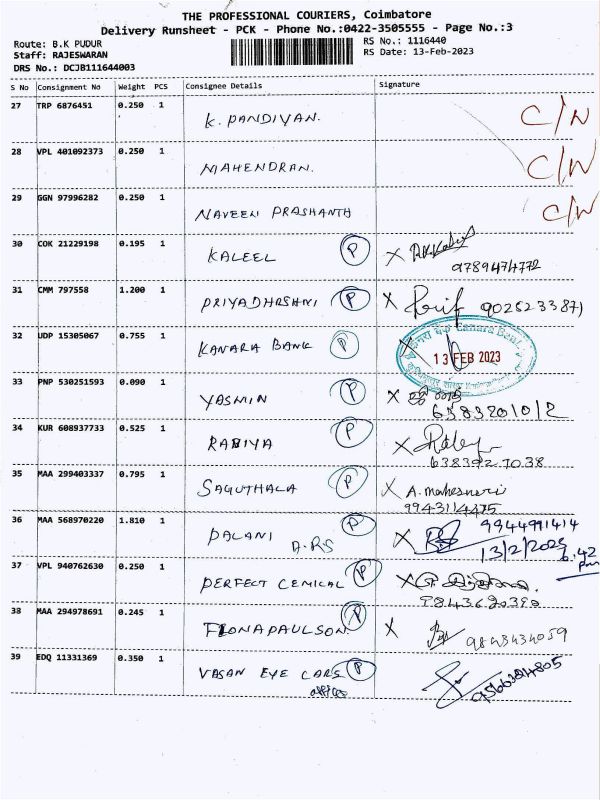 THE PROFESSIONAL COURIERS, Coimbatore
Delivery Runsheet - PCK - Phone No.:0422-3505555 - Page No.:3
Route: B.K PUDUR
RS No.: 1116440
Staff: RAJESWARAN
RS Date: 13-Feb-2023
DRS No.: DCJB111644003
S No Consignment No Weight PCS Consignee Details Signature
27 TRP 6876451 0.250 1 K. PANDIYAN. C/N
28 VPL 401092373 0.250 1 MAHENDRAN. C/N
29 GGN 97996282 0.250 1 NAVEEN PRASHANTH C/N
30 COK 21229198 0.195 1 KALEEL P X
9789474772
31 CMM 797558 1.200 1 PRIYADHRSHNI P X
32 UDP 15305067 0.755 1 KANARA BANK P X
Canara Bank
13 FEB 2023
33 PNP 530251593 0.090 1 YASMIN P X
6383201012
34 KUR 608937733 0.525 1 RABIYA P X
35 MAA 299403337 0.795 1 SAGUTHALA P X A. maheswari
9943114475
36 MAA 568970220 1.810 1 PALANI P X 9944991414
A.RS 13/2/2023
6.42 pm
37 VPL 940762630 0.250 1 PERFECT CEMICAL P X
38 MAA 294978691 0.245 1 FIONAPAULSON. P X 9843434059
39 EDQ 11331369 0.350 1 VASAN EYE CARS P
office